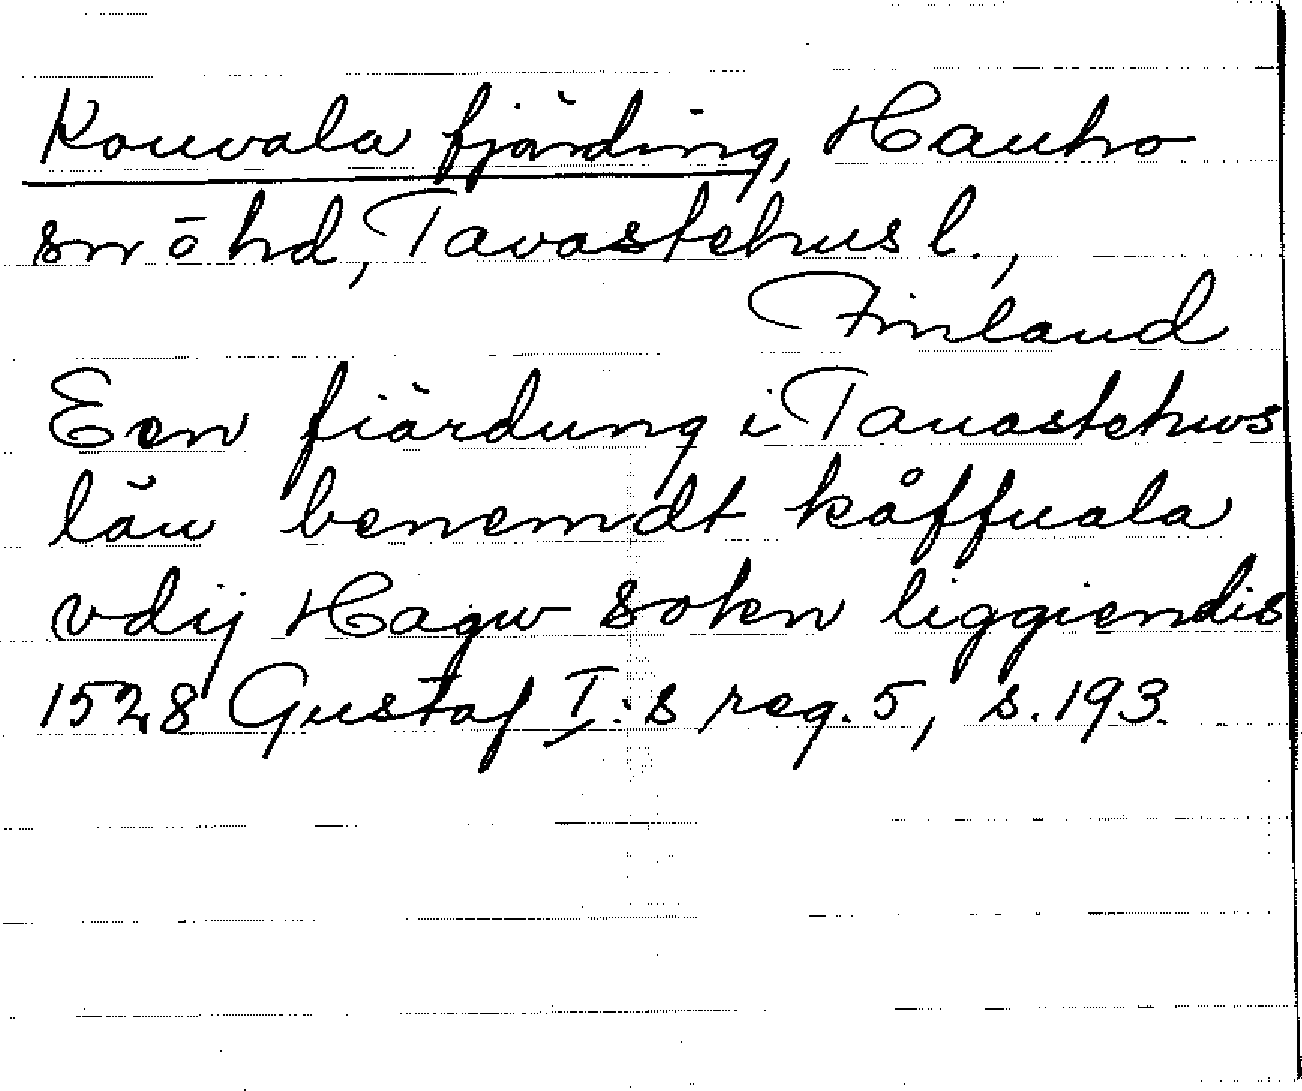 Kouvala fjärding, Hauho
sn o hd, Tavastehus l.,
Finland
Een fiärdung i Tauastehws
län benemdt kåffuala
vdij Hagw soken liggiendis
1528 Gustaf I:s reg. 5, s. 193.